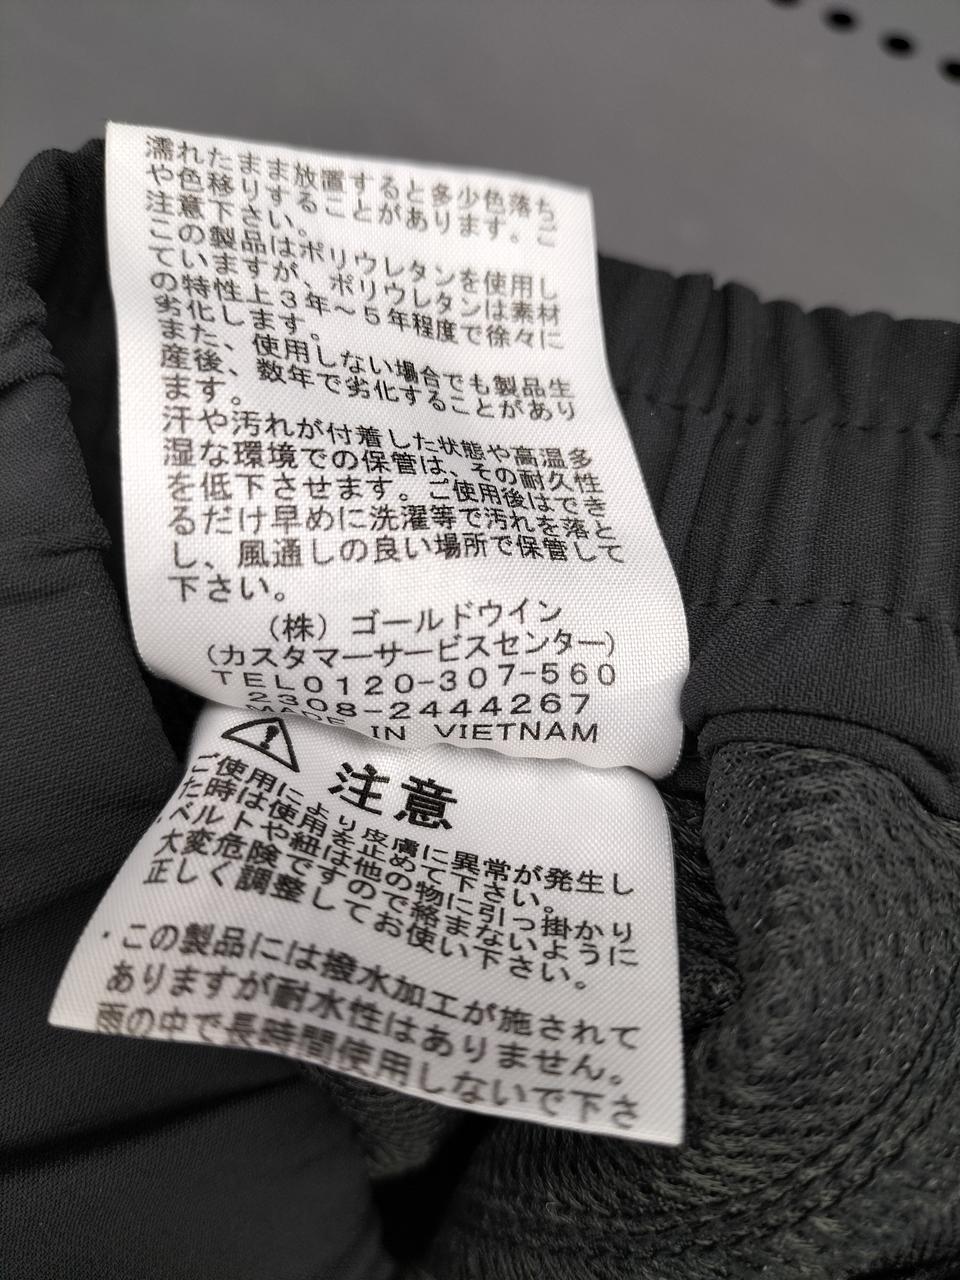 濡れたまま放置すると多少色落ち
や色移りすることがあります。ご
注意下さい。
この製品はポリウレタンを使用し
ていますが、ポリウレタンは素材
の特性上3年～5年程度で徐々に
劣化します。
また、使用しない場合でも製品生
産後、数年で劣化することがあり
ます。
汗や汚れが付着した状態や高温多
湿な環境での保管は、その耐久性
を低下させます。ご使用後はでき
るだけ早めに洗濯等で汚れを落と
し、風通しの良い場所で保管して
下さい。
(株)ゴールドウイン
(カスタマーサービスセンター)
TEL0120-307-560
2308-2444267
MADE IN VIETNAM
注意
ご使用により皮膚に異常が発生し
た時は使用を止めて下さい。
・ベルトや紐は他の物に引っ掛かり
大変危険ですので絡まないように
正しく調整してお使い下さい。
・この製品には撥水加工が施されて
ありますが耐水性はありません。
雨の中で長時間使用しないで下さ